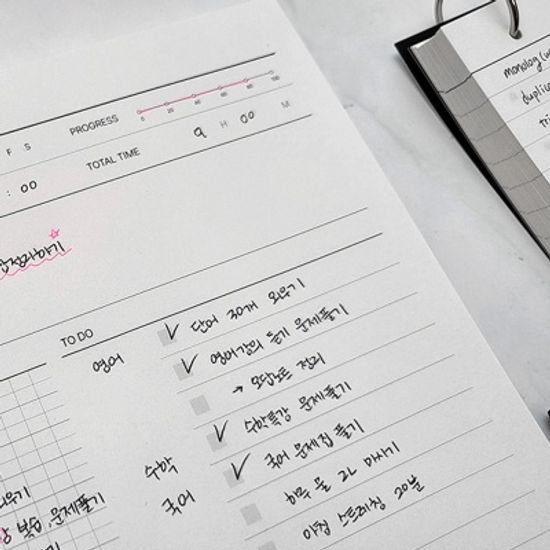 F S PROGRESS 0 20 40 60 80 100
: 00 TOTAL TIME 9 H 00 M
TO DO
영어 단어 30개 외우기
영어강의 듣기 문제풀기
→ 오답노트 정리
수학 수학특강 문제풀기
국어 국어 문제집 풀기
하루 물 2L 마시기
아침 스트레칭 20분
외우기
복습, 문제풀기
monolog
duplic
tri